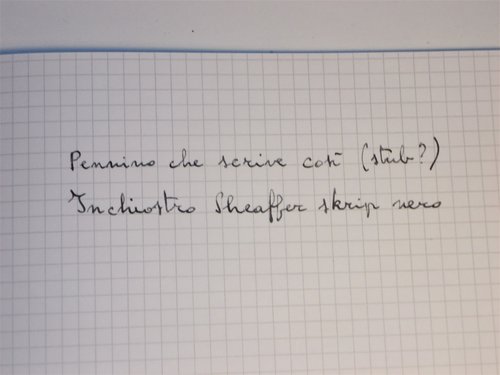 Pennino che scrive così (stub?)
Inchiostro Sheaffer skrip nero